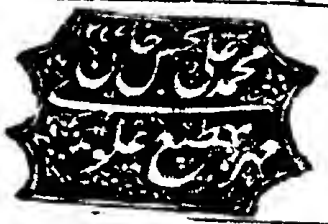 محمد علی بخش خان
مہر مطبع علوی